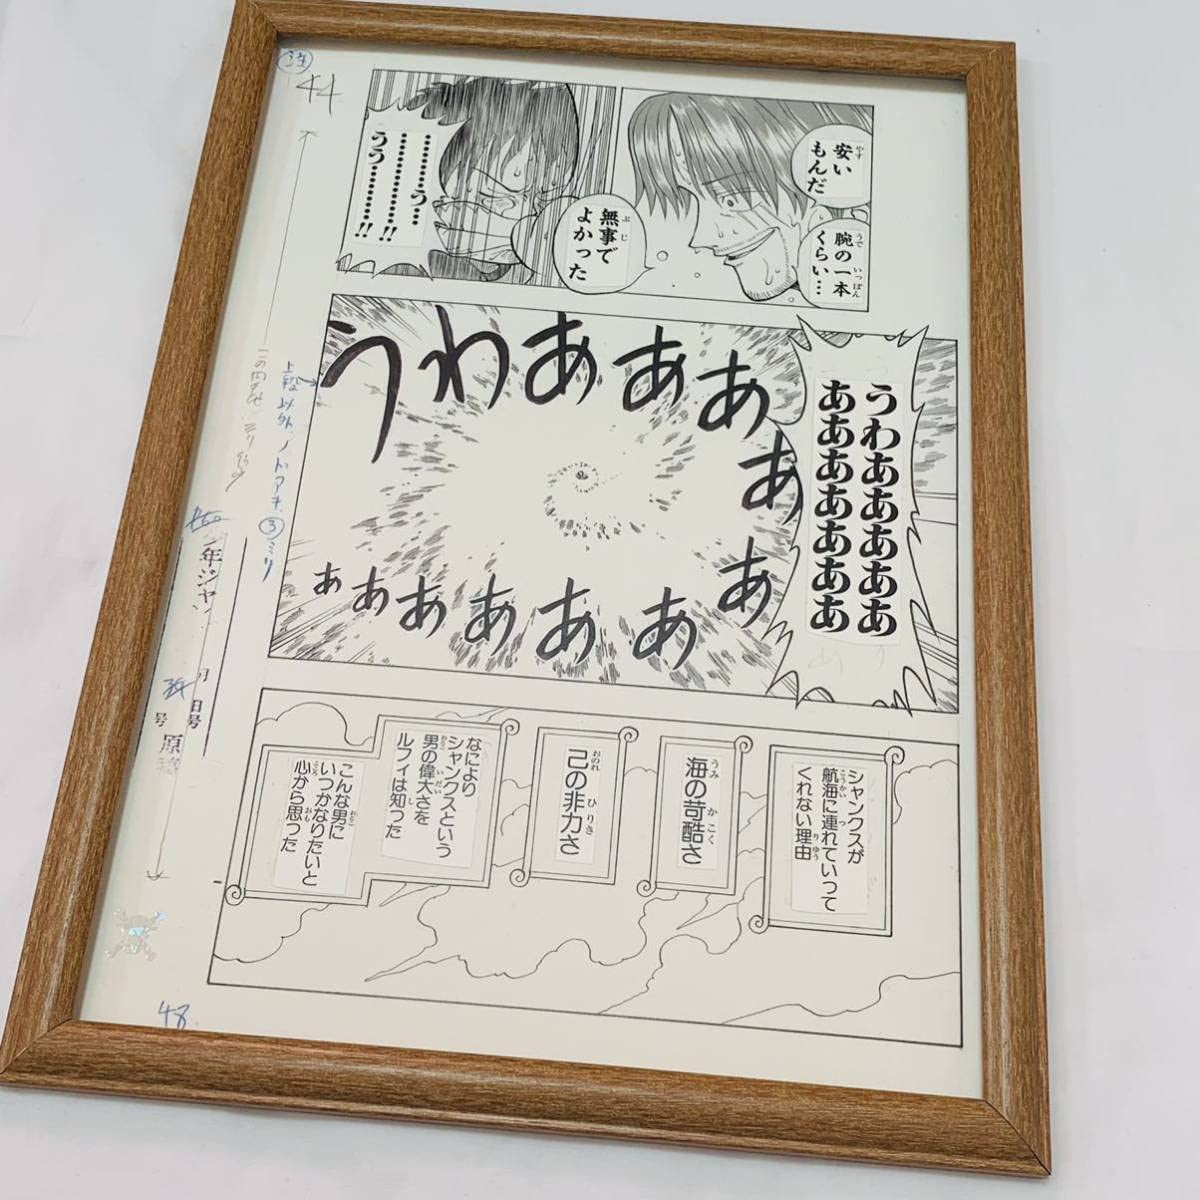 44
安い
もんだ
腕の一本
くらい…
無事で
よかった
…………う…
……………!!
うう…………!!
うわあああああ
あああああああ
うわあああああ
あああああああ
上段以外ノドアキ③ミリ
年ジャン
月
日号
号
原稿
シャンクスが
航海に連れていって
くれない理由
海の苛酷さ
己の非力さ
なにより
シャンクスという
男の偉大さを
ルフィは知った
こんな男に
いつかなりたいと
心から思った
48